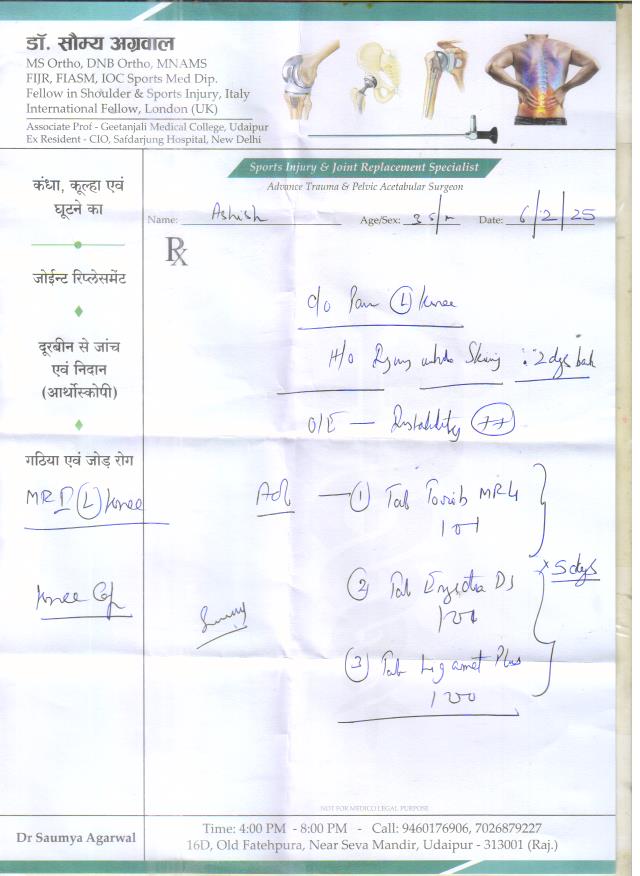 डॉ. सौम्य अग्रवाल
MS Ortho, DNB Ortho, MNAMS
FIJR, FIASM, IOC Sports Med Dip.
Fellow in Shoulder & Sports Injury, Italy
International Fellow, London (UK)
Associate Prof - Geetanjali Medical College, Udaipur
Ex Resident - CIO, Safdarjung Hospital, New Delhi
Sports Injury & Joint Replacement Specialist
Advance Trauma & Pelvic Acetabular Surgeon
कंधा, कूल्हा एवं
घूटने का
जोईन्ट रिप्लेसमेंट
दूरबीन से जांच
एवं निदान
(आर्थोस्कोपी)
गठिया एवं जोड़ रोग
Name: Ashish Age/Sex: 35/m Date: 6/2/25
Rx
c/o Pain (L) Knee
H/o 2dys bak
O/E — Instability (++)
MRI (L) Knee
Knee Cap
Adv — (1) Tab MR4
101
(2) Tab DS
(3) Tab Ligamet Plus
100
x 5dys
NOT FOR MEDICO LEGAL PURPOSE
Dr Saumya Agarwal
Time: 4:00 PM - 8:00 PM - Call: 9460176906, 7026879227
16D, Old Fatehpura, Near Seva Mandir, Udaipur - 313001 (Raj.)